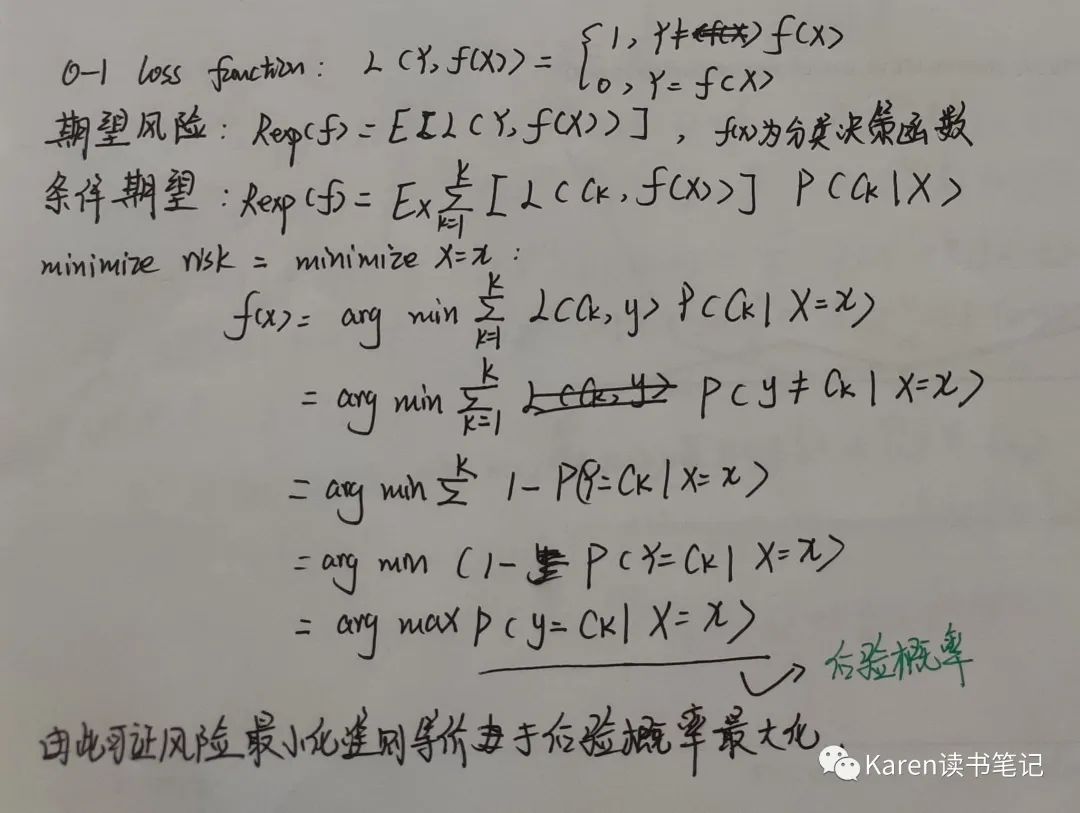 0-1 loss function: L(Y, f(X)) = { 1, Y ≠ f(X)
0, Y = f(X)
期望风险: Rexp(f) = E[L(Y, f(X))], f(x)为分类决策函数
条件期望: Rexp(f) = Ex ∑_{k=1}^{K} [L(Ck, f(X))] P(Ck|X)
minimize risk = minimize X=x:
f(x) = arg min ∑_{k=1}^{K} L(Ck, y) P(Ck | X=x)
= arg min ∑_{k=1}^{K} P(y ≠ Ck | X=x)
= arg min ∑^{K} 1-P(Y=Ck | X=x)
= arg min (1- P(Y=Ck | X=x)
= arg max P(y=Ck | X=x)
后验概率
由此可证风险最小化准则等价于后验概率最大化.
Karen读书笔记